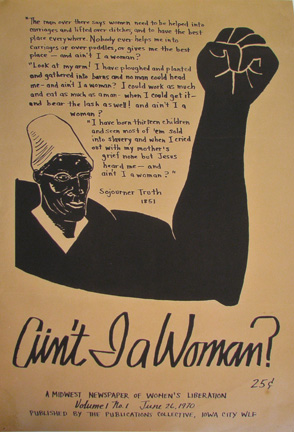 "The man over there says women need to be helped into
carriages and lifted over ditches, and to have the best
place everywhere. Nobody ever helps me into
carriages or over puddles, or gives me the best
place — and ain't I a woman?
"Look at my arm! I have ploughed and planted
and gathered into barns and no man could head
me — and ain't I a woman? I could work as much
and eat as much as a man — when I could get it —
and bear the lash as well! and ain't I a
woman?
"I have born thirteen children
and seen most of 'em sold
into slavery and when I cried
out with my mother's
grief none but Jesus
heard me — and
ain't I a woman?"
Sojourner Truth
1851
Ain't I a Woman?
25¢
A MIDWEST NEWSPAPER OF WOMEN'S LIBERATION
Volume 1 No. 1 June 26, 1970
PUBLISHED BY THE PUBLICATIONS COLLECTIVE, IOWA CITY WLF